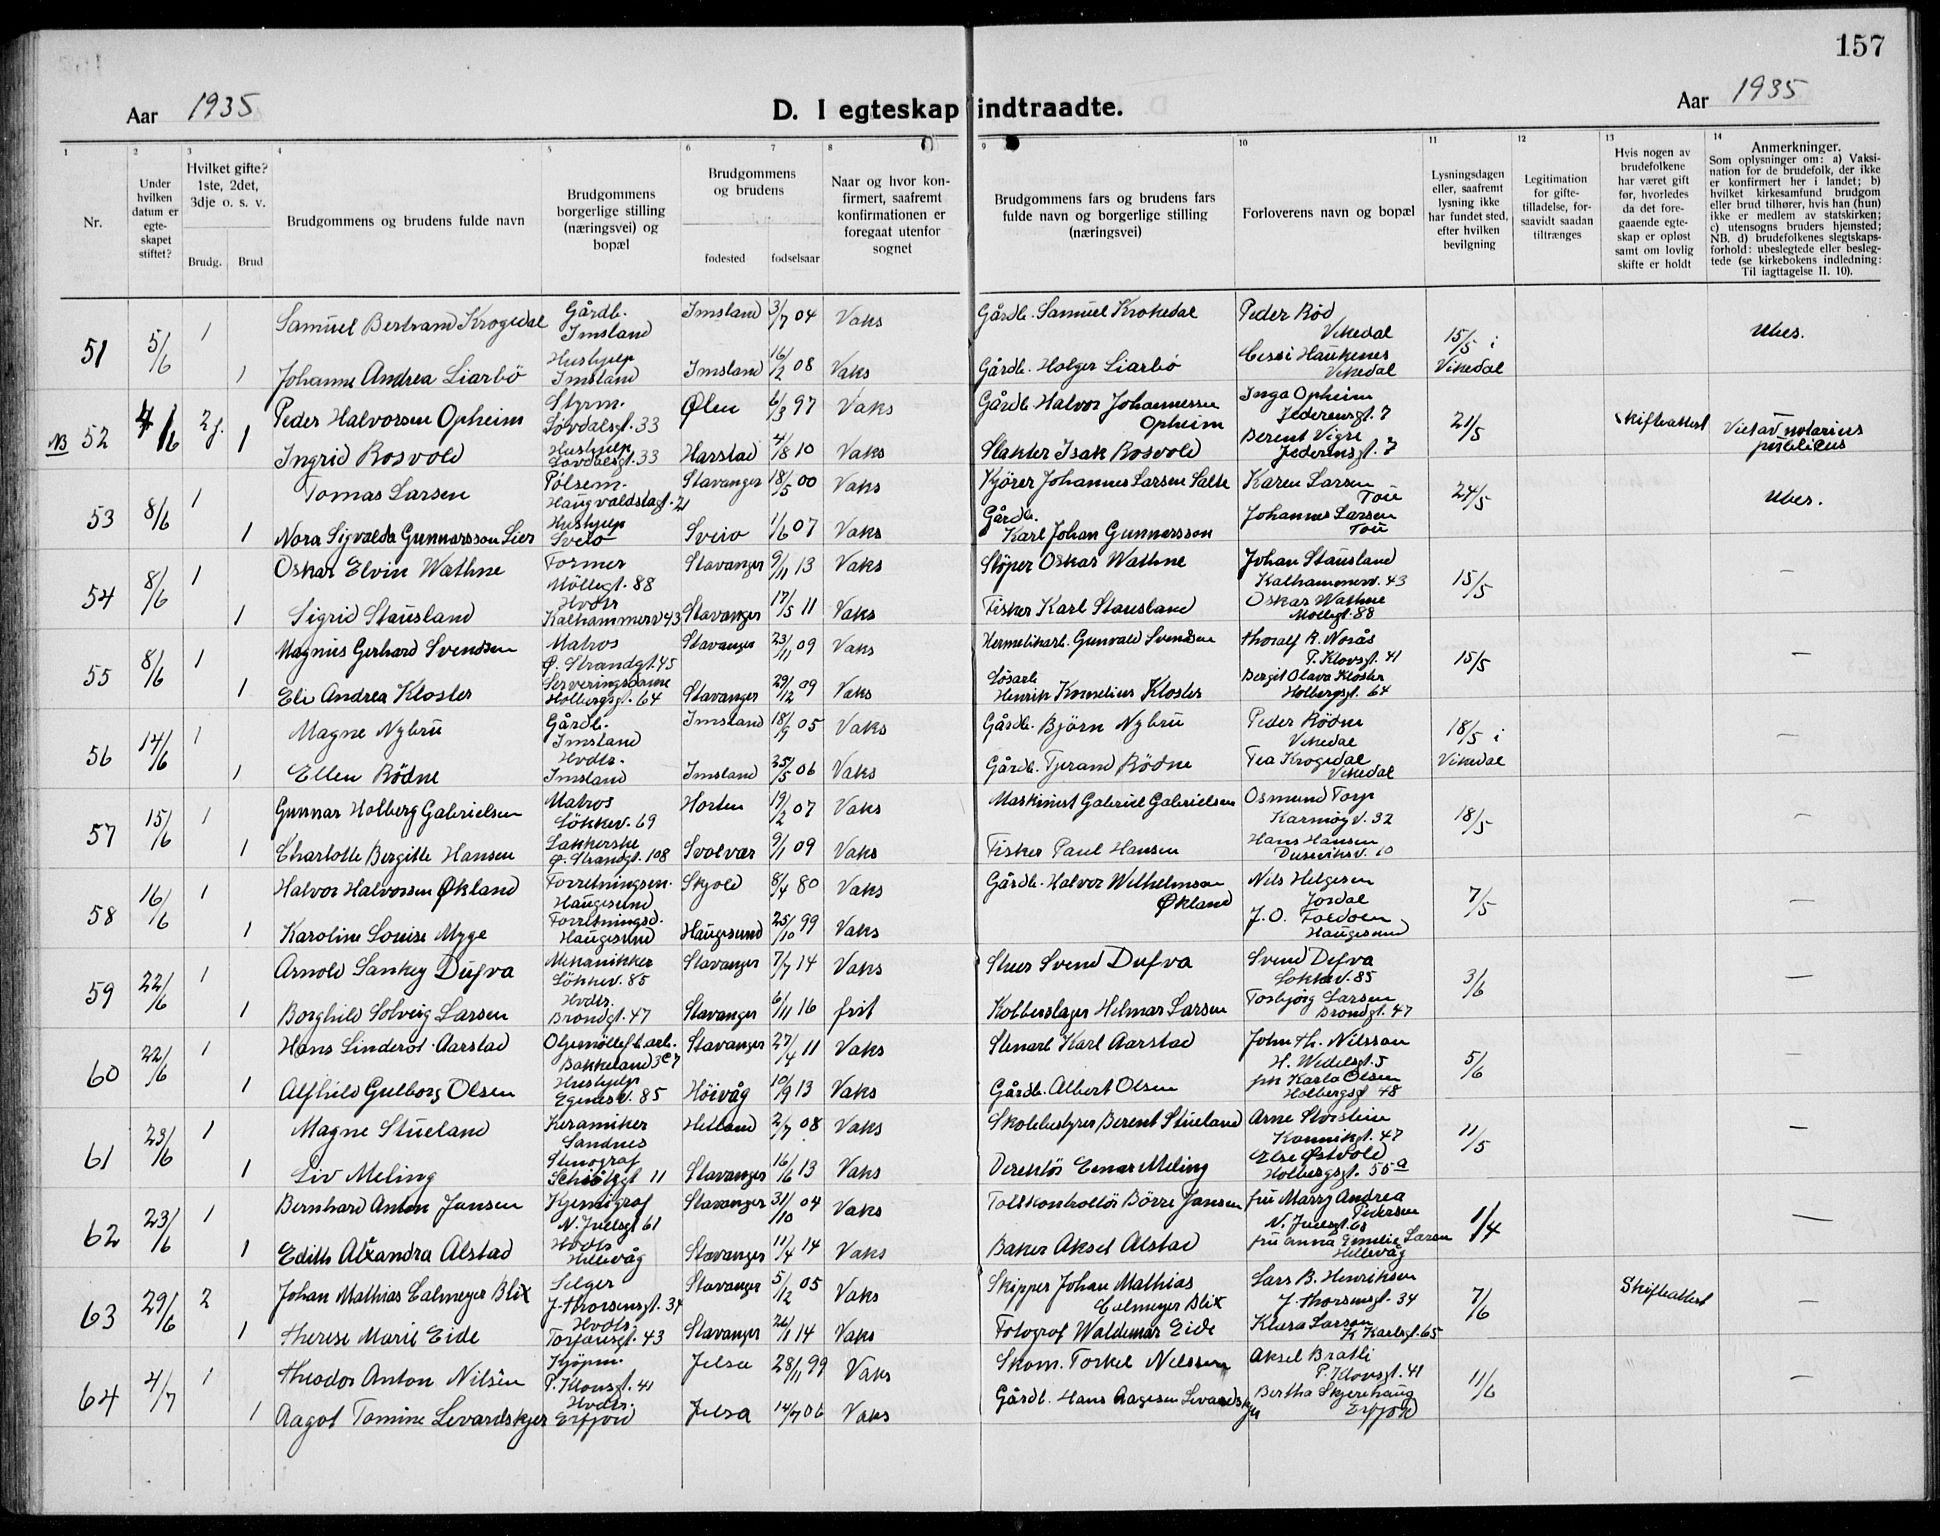 157
Aar 1935
D. I egteskap indtraadte.
Aar 1935
1 2 3 4 5 6 7 8 9 10 11 12 13 14
Nr.
Under hvilken datum er egte-skapet stiftet?
Hvilket gifte? 1ste, 2det, 3dje o. s. v.
Brudg. Brud
Brudgommens og brudens fulde navn
Brudgommens borgerlige stilling (næringsvei) og bopæl
Brudgommens og brudens
fødested fødselsaar
Naar og hvor kon-firmert, saafremt konfirmationen er foregaat utenfor sognet
Brudgommens fars og brudens fars fulde navn og borgerlige stilling (næringsvei)
Forloverens navn og bopæl
Lysningsdagen eller, saafremt lysning ikke har fundet sted, efter hvilken bevilgning
Legitimation for gifte-tilladelse, for-saavidt saadan tiltrænges
Hvis nogen av brudefolkene har været gift før, hvorledes da det fore-gaaende egte-skap er opløst samt om lovlig skifte er holdt
Anmerkninger.
Som oplysninger om: a) Vaksi-nation for de brudefolk, der ikke er konfirmert her i landet; b) hvilket kirkesamfund brudgom eller brud tilhører, hvis han (hun) ikke er medlem av statskirken; c) utensogns bruders hjemsted; NB. d) brudefolkenes slegtskaps-forhold: ubeslegtede eller besleg-tede (se kirkebokens indledning: Til iagttagelse II. 10).
51 5/6 1 Samuel Bertrand Krogedal Gårdb. Imsland Imsland 3/7 04 Vaks Gårdb. Samuel Krokedal Peder Rød Vikedal 15/5 i Vikedal Ubes.
1 Johanne Andrea Liarbö Hushjelp Imsland Imsland 16/2 08 Vaks Gårdb. Holger Liarbö Cessi Haukenes Vikedal
NB 52 4/6 2 g. Peder Halvorsen Opheim Styrm. Lövdalsgt. 33 Ølen 6/3 97 Vaks Gårdb. Halvor Johannessen Opheim Inga Opheim Jederensgt. 7 21/5 Skifteattest Viet av notarius publicus
1 Ingrid Rosvold Hushjelp Lövdalsgt. 33 Harstad 4/8 10 Vaks Slakter Isak Rosvold Berent Vigre Jederensgt. 7
53 8/6 1 Tomas Larsen Pølsem. Haugvaldstagt. 21 Stavanger 18/5 00 Vaks Kjörer Johannes Larsen Salte Karen Larsen Tou 24/5 Ubes.
1 Nora Sigvalda Gunnarsson Lier Hushjelp Sveio Sveio 1/6 07 Vaks Gårdb. Karl Johan Gunnarsson Johannes Larsen Tou
54 8/6 1 Oskar Elvin Wathne Former Möllegt. 88 Stavanger 9/11 13 Vaks Støper Oskar Wathne Johan Stausland Kalhammerv. 43 15/5 –
1 Sigrid Stausland Hvdtr Kalhammerv 43 Stavanger 17/5 11 Vaks Fisker Karl Stausland Oskar Wathne Möllegt. 88
55 8/6 1 Magnus Gerhard Svendsen Matros Ø. Strandgt. 45 Stavanger 23/11 09 Vaks Hermetikarb. Gunvald Svendsen Thoralf R. Norås P. Klowsgt. 41 15/5 –
1 Eli Andrea Kloster Serveringsdame Holbergsgt. 64 Stavanger 29/12 09 Vaks Løsarb. Henrik Kornelius Kloster Bergit Olava Kloster Holbergsgt. 64
56 14/6 1 Magne Nybru Gårdb. Imsland Imsland 18/9 05 Vaks Gårdb. Björn Nybru Peder Rödne Vikedal 18/5 i Vikedal –
1 Ellen Rödne Hvdtr. Imsland Imsland 25/5 06 Vaks Gårdb. Tjerand Rödne Tea Krogedal Vikedal
57 15/6 1 Gunnar Holberg Gabrielsen Matros Lökkev. 69 Horten 19/2 07 Vaks Maskinist Gabriel Gabrielsen Osmund Torp Karmøyv. 32 18/5 –
1 Charlotte Bergitte Hansen Lakkerske Ø. Strandgt. 108 Svolvær 9/1 09 Vaks Fisker Paul Hansen Hans Hansen Duseviksv. 10
58 16/6 1 Halvor Halvorsen Økland Forretningsm. Haugesund Skjold 8/4 80 Vaks Gårdb. Halvor Wilhelmson Økland Nils Helgesen Jordal 7/5 –
1 Karoline Louise Myge Forretningsd. Haugesund Haugesund 25/10 99 Vaks J. O. Foedoen Haugesund
59 22/6 1 Arnold Sankey Dufva Mekanikker Lökkev. 85 Stavanger 7/7 14 Vaks Stuer Svend Dufva Svend Dufva Lökkev. 85 3/6 –
1 Borghild Solveig Larsen Hvdtr. Brøndgt. 47 Stavanger 6/11 16 frit Kobberslager Helmar Larsen Torbjörg Larsen Brøndgt. 47
60 22/6 1 Hans Linderot Aarstad Oljemøllef.arb. Bakkeland 3c 7 Stavanger 27/4 11 Vaks Stenarb Karl Aarstad John Th. Nilsson H. Wedelsgt. 5 5/6 –
1 Alfhild Gulborg Olsen Hushjelp Egenesv. 85 Höivåg 10/9 13 Vaks Gårdb. Albert Olsen frk Karla Olsen Holbergsgt 48
61 23/6 1 Magne Stueland Keramiker Sandnes Hetland 2/7 08 Vaks Skolebestyrer Berent Stueland Arne Storstein Kannikgt. 47 11/5 –
1 Liv Meling Stenograf Schiötzgt 11 Stavanger 16/6 13 Vaks Direktör Einar Meling Else Østvold Holbergsgt. 55 a
62 23/6 1 Bernhard Anton Jansen Kjemigraf N. Juelsgt 61 Stavanger 31/10 04 Vaks Tollkontrollör Börre Jansen fru Marry Andrea Pedersen N. Juelsgt. 61 1/4 –
1 Edith Alexandra Alstad Hvdtr Hillevåg Stavanger 11/4 14 Vaks Baker Aksel Alstad fru Anna Emelie Larsen Hillevåg
63 29/6 2 Johan Mathias Calmeyer Blix Selger J. Thorsensgt. 34 Stavanger 5/12 05 Vaks Skipper Johan Mathias Calmeyer Blix Lars B. Henriksen J. Thorsensgt. 34 7/6 Skifteattest –
1 Therese Marie Eide Hvdtr. Torfæusgt. 43 Stavanger 26/1 14 Vaks Fotograf Waldemar Eide Klara Larson K Karlsgt. 65
64 4/7 1 Theodor Anton Nilsen Kjöpm. P. Klowsgt. 41 Jelsa 28/11 99 Vaks Skom. Torkel Nilssen Aksel Bratli P. Klowsgt. 41 11/6 –
1 Aagot Tomine Levardskjer Hvdtr. Erfjord Jelsa 14/7 06 Vaks Gårdb. Hans Aagesen Levardskjer Bertha Skjerehaug Erfjord